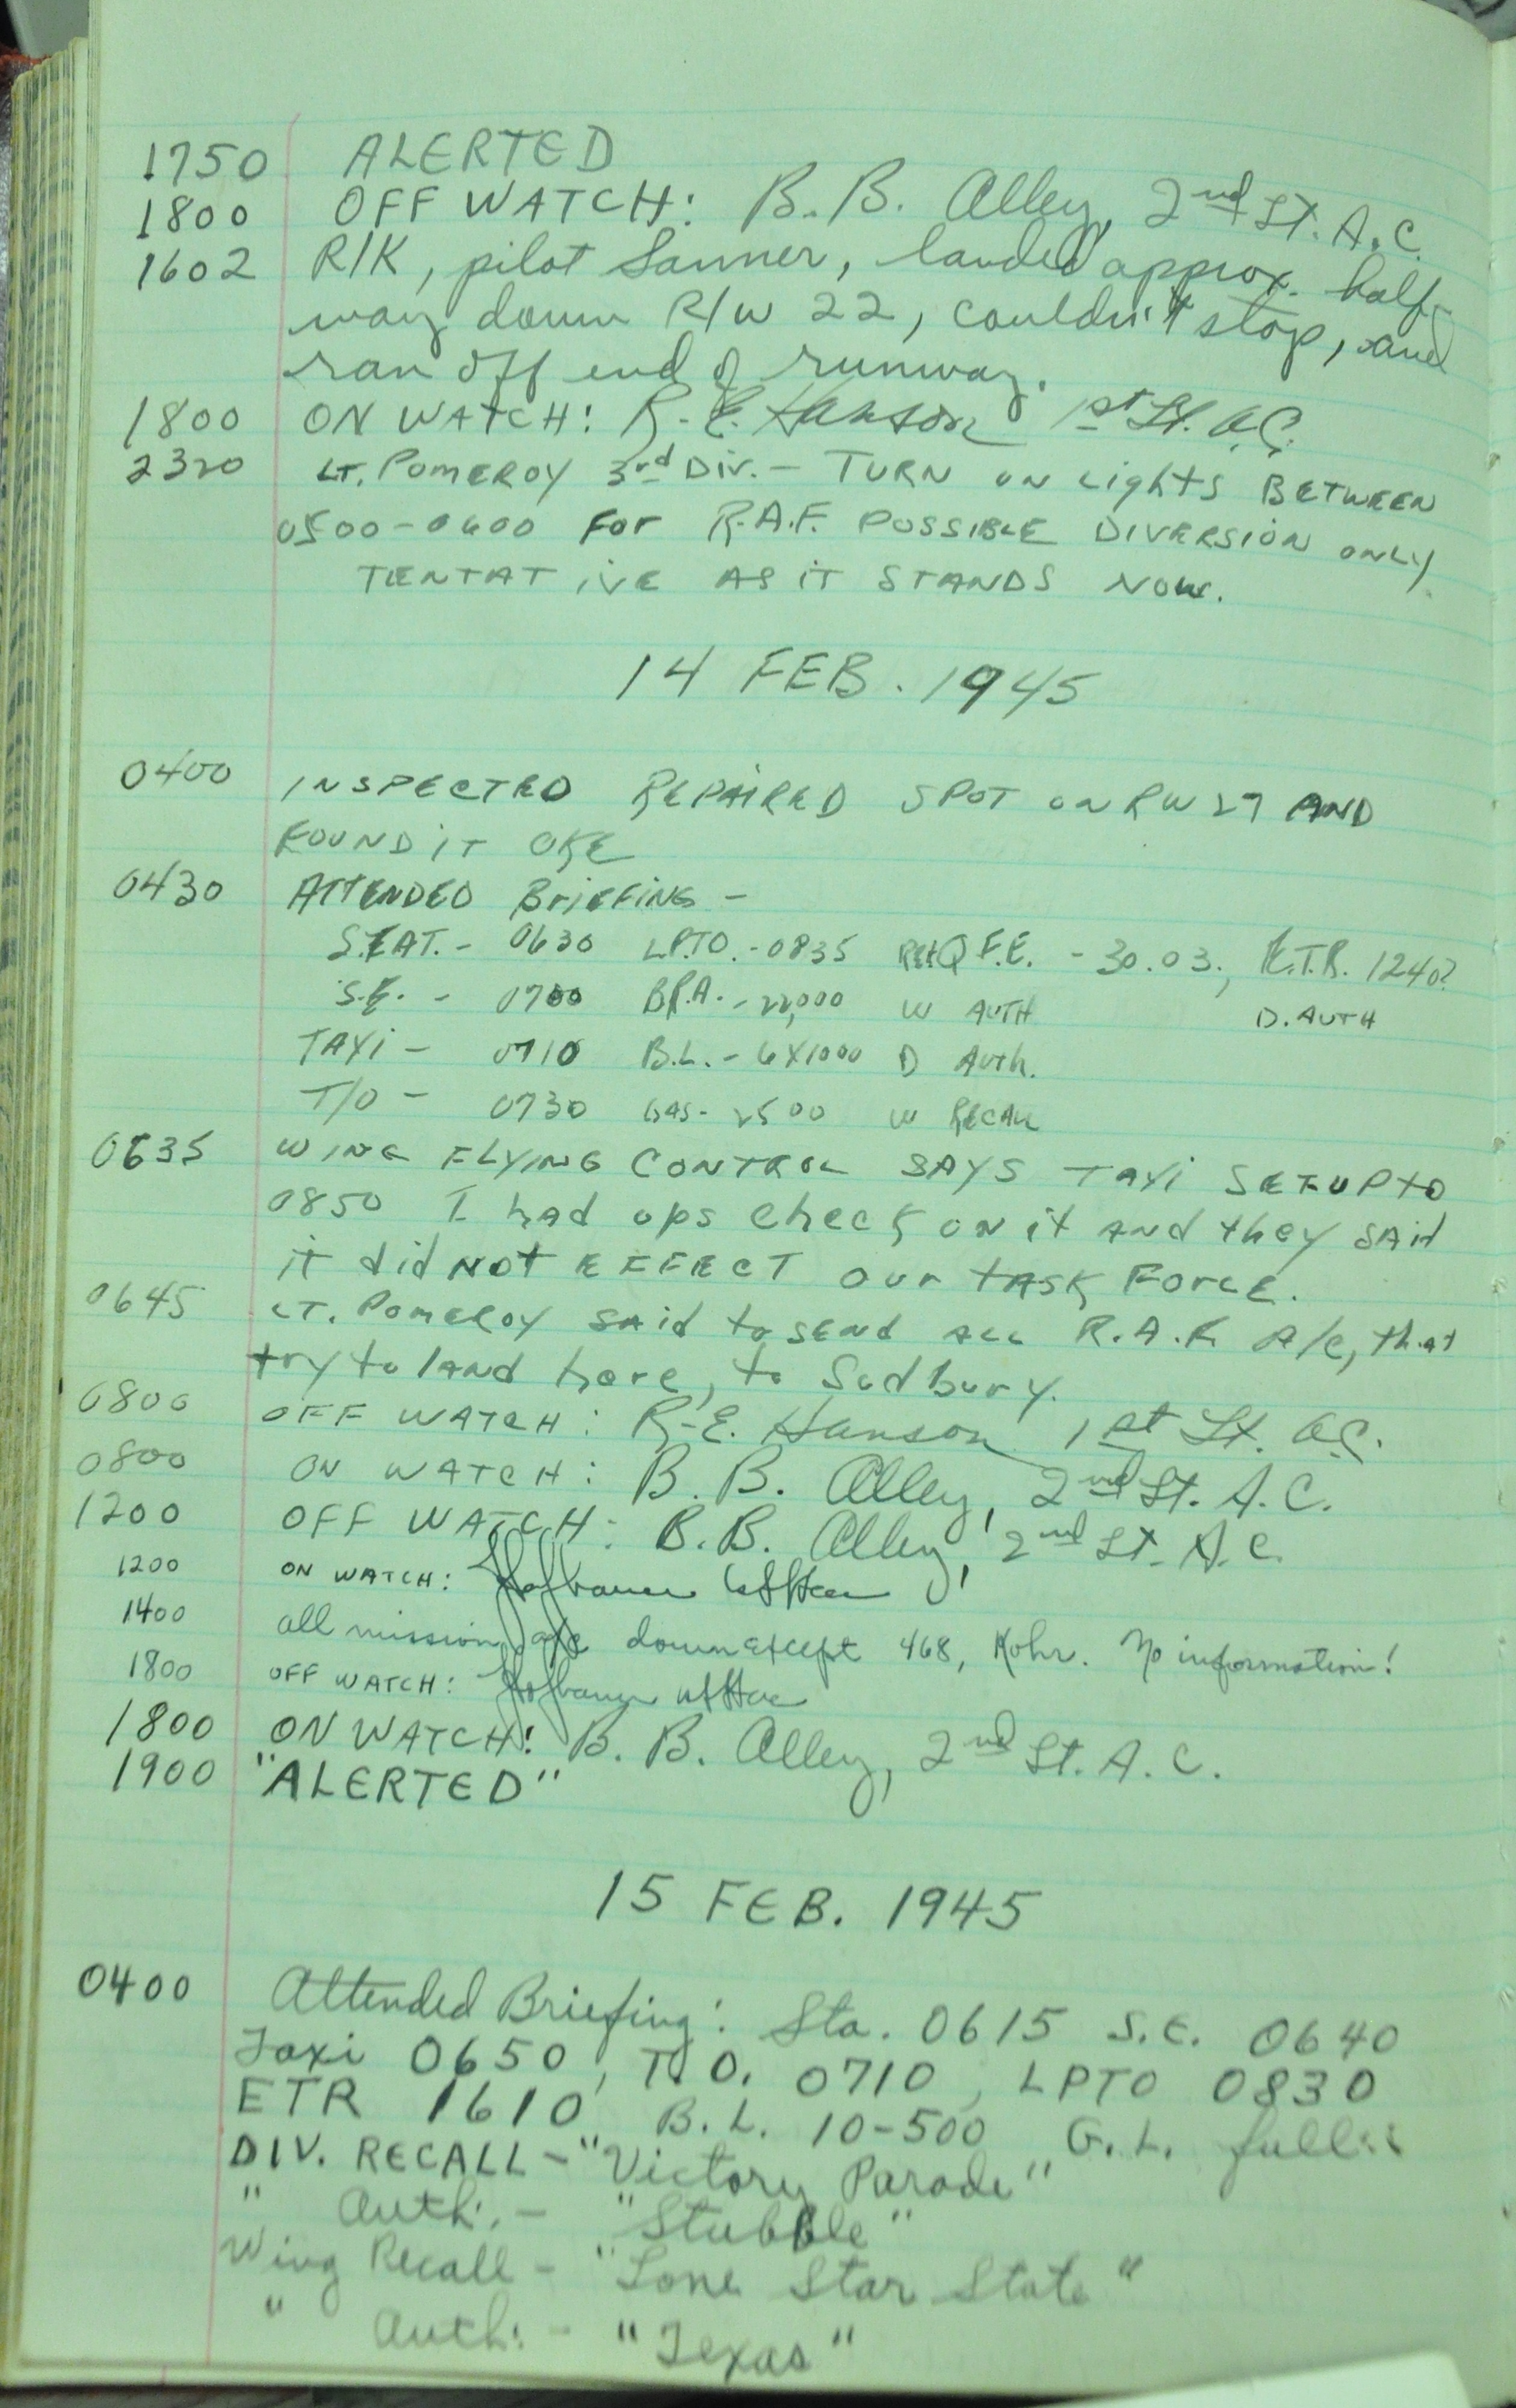 1750 ALERTED
1800 OFF WATCH: B. B. Alley, 2nd Lt. A.C.
1602 R/K, pilot Sanner, landed approx. half-
way down R/W 22, couldn't stop, and
ran off end of runway.
1800 ON WATCH: R. E. Hanson 1st Lt. A.C.
2320 LT. POMEROY 3rd DIV. - TURN ON LIGHTS BETWEEN
0500-0600 FOR R.A.F. POSSIBLE DIVERSION ONLY
TENTATIVE AS IT STANDS NOW.
14 FEB. 1945
0400 INSPECTED REPAIRED SPOT ON RW 27 AND
FOUND IT OKE
0430 ATTENDED BRIEFING -
STAT. - 0630 LPTO. - 0835 Q.F.E. - 30.03., E.T.R. 1240?
S.E. - 0700 B.P.A. - 22,000 W AUTH D. AUTH
TAXI - 0710 B.L. - 6X1000 D Auth.
T/O - 0730 GAS - 2500 W RECALL
0635 WING FLYING CONTROL SAYS TAXI SET UP TO
0850 I had ops check on it AND they SAID
it did NOT EFFECT OUR TASK FORCE.
0645 LT. POMEROY SAID to SEND ALL R.A.F. A/C, that
try to LAND here, to Sudbury.
0800 OFF WATCH: R. E. Hanson 1st Lt. A.C.
0800 ON WATCH: B. B. Alley, 2nd Lt. A.C.
1200 OFF WATCH: B. B. Alley, 2nd Lt. A.C.
1200 ON WATCH:
1400 all mission a/c down except 468, Kohr. No information!
1800 OFF WATCH:
1800 ON WATCH: B. B. Alley, 2nd Lt. A.C.
1900 "ALERTED"
15 FEB. 1945
0400 Attended Briefing: Sta. 0615 S.E. 0640
Taxi 0650, T.O. 0710, LPTO 0830
ETR 1610 B.L. 10-500 G.L. full
DIV. RECALL - "Victory Parade"
" Auth. - "Stubble"
Wing Recall - "Lone Star State"
" Auth. - "Texas"